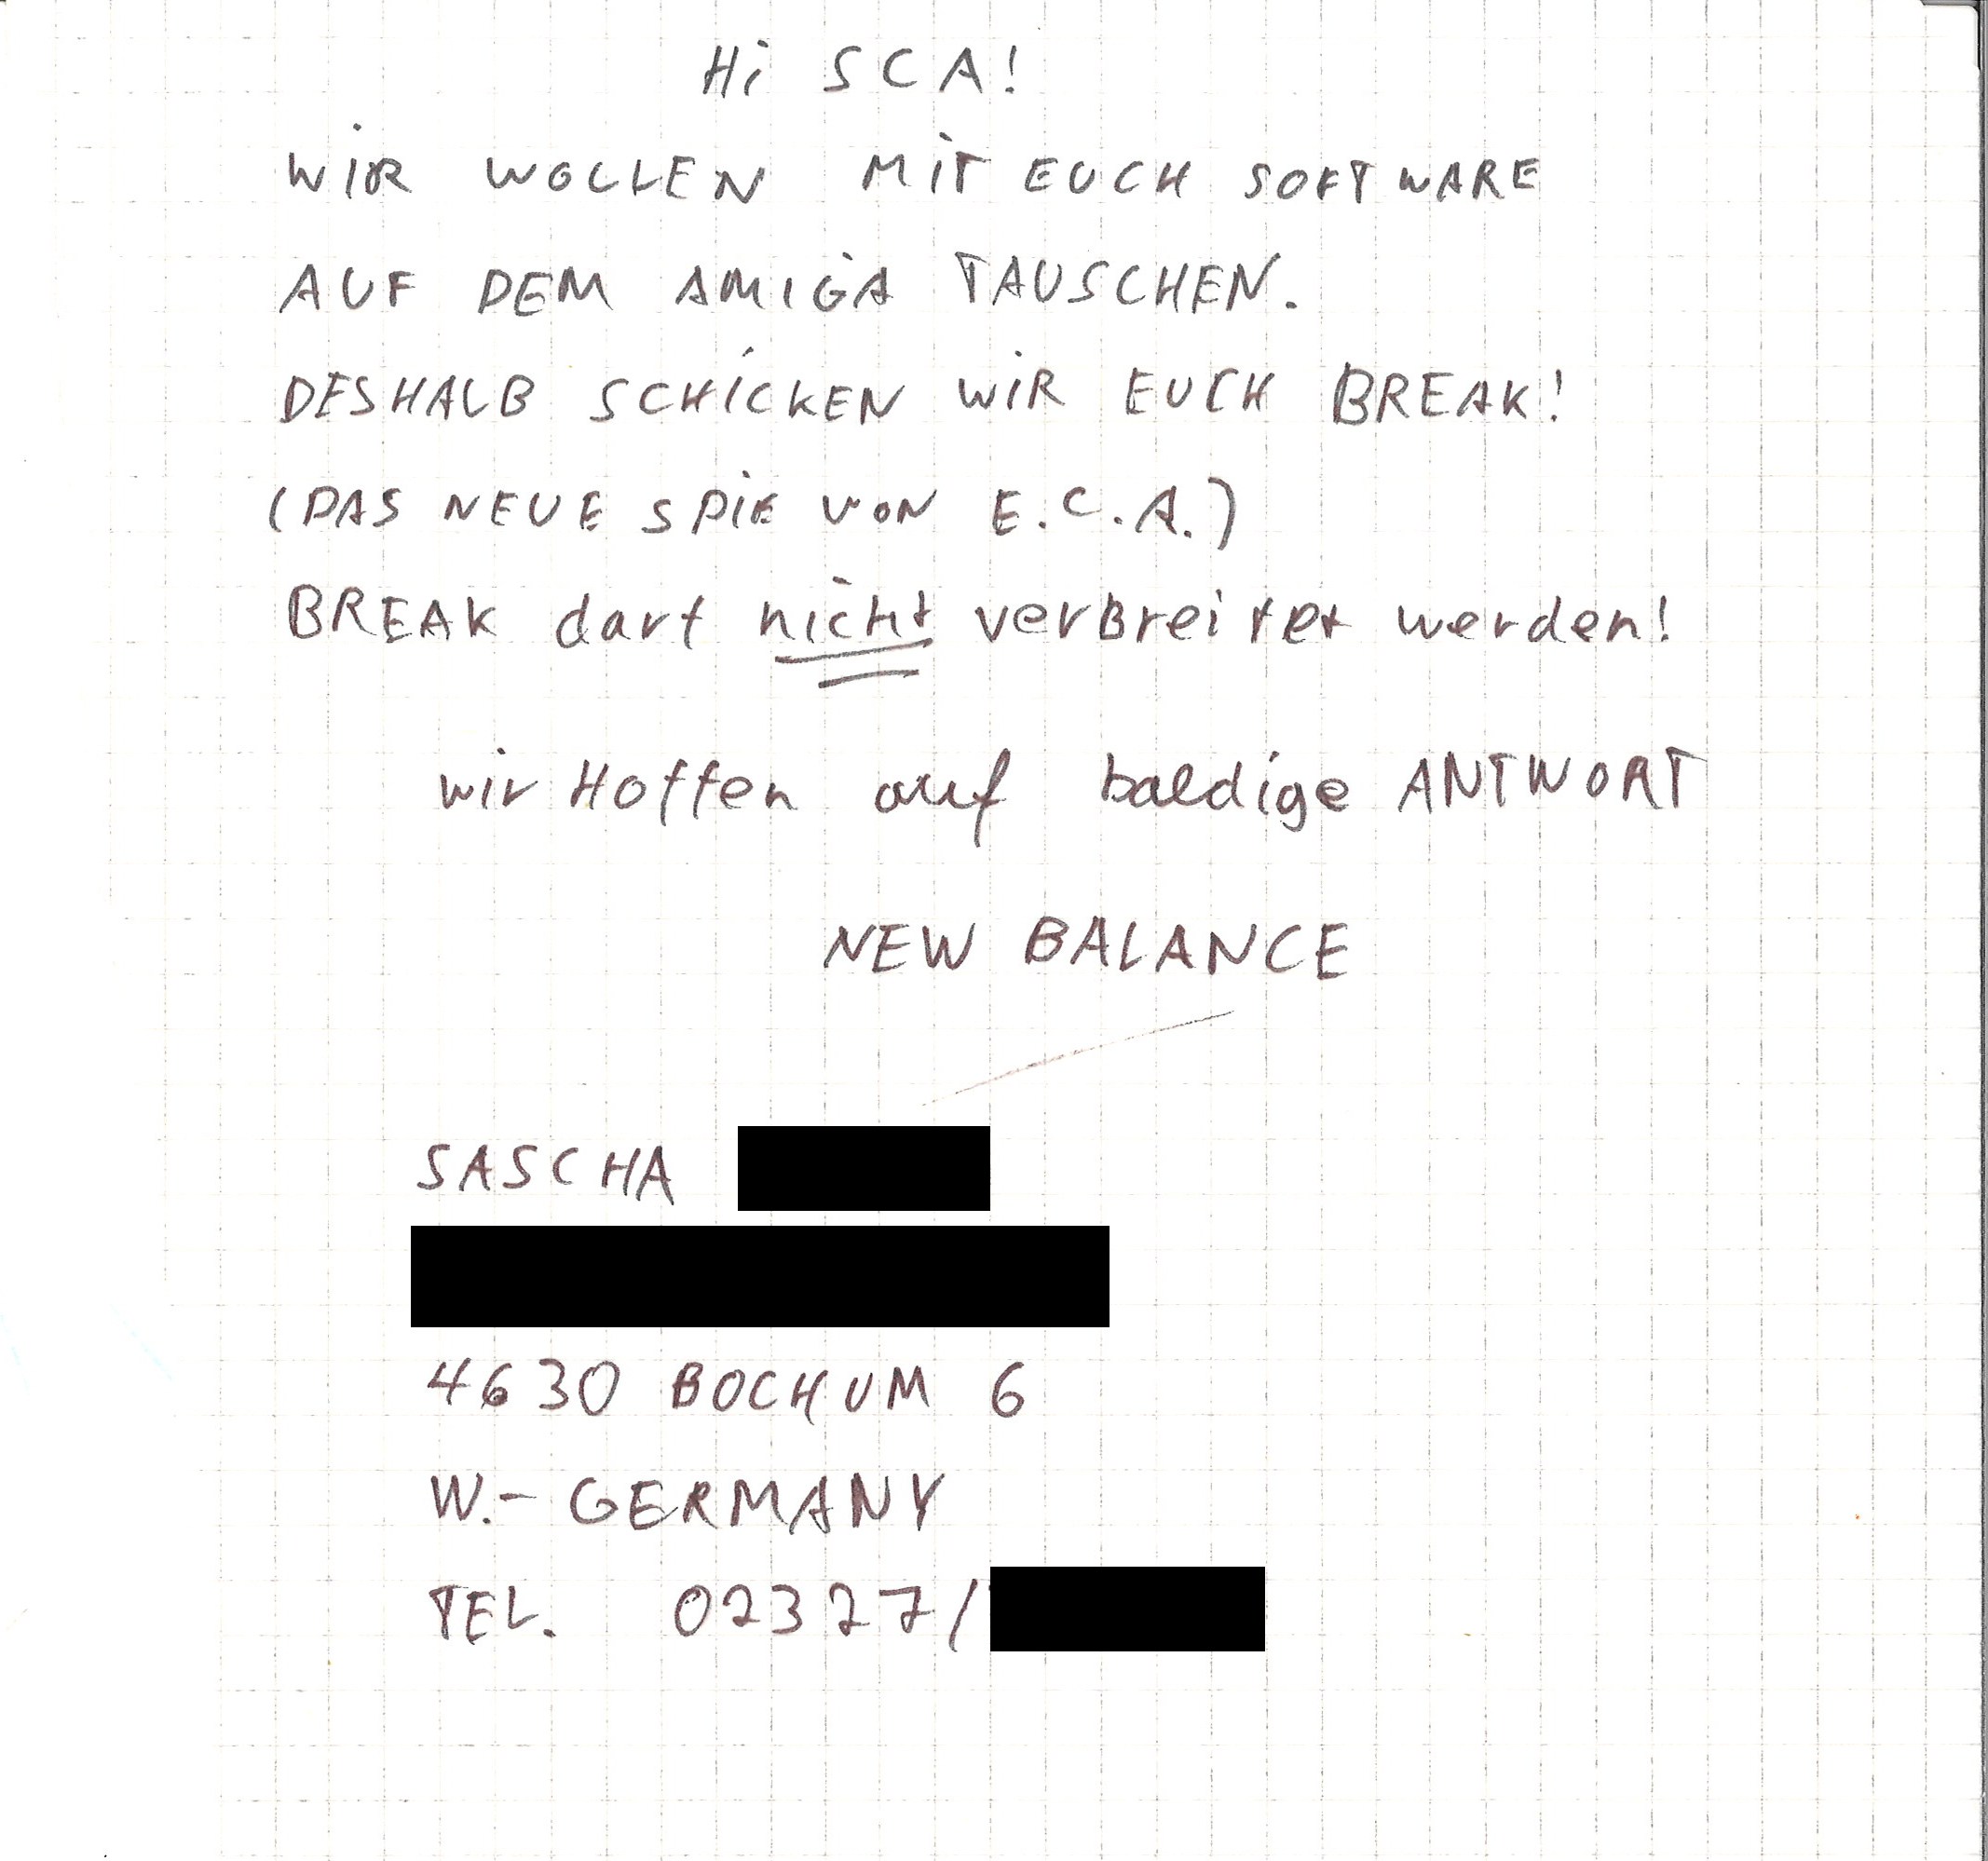 Hi SCA!
WIR WOLLEN MIT EUCH SOFTWARE
AUF DEM AMIGA TAUSCHEN.
DESHALB SCHICKEN WIR EUCH BREAK!
(DAS NEUE SPIE VON E.C.A.)
BREAK darf nicht verBreitet werden!
wir Hoffen auf baldige ANTWORT
NEW BALANCE
SASCHA
4630 BOCHUM 6
W.- GERMANY
TEL. 02327/